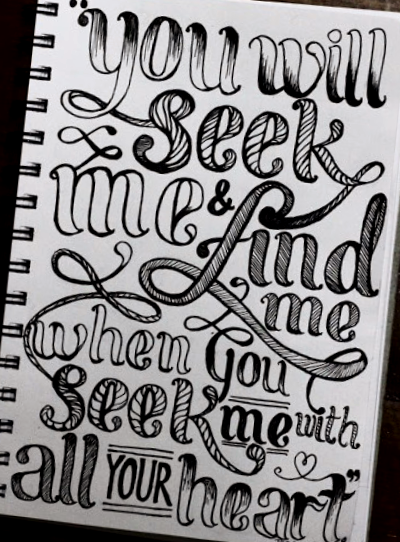 "you will
seek
me & find
me
when you
seek me with
all YOUR heart"